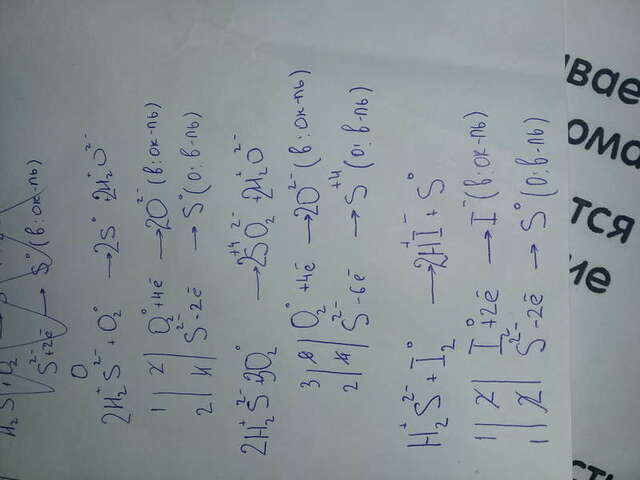 H₂S + O₂
S²⁻+2ē → S⁰ (в: ок-ль)
O
2H₂⁺S²⁻ + O₂⁰ → 2S⁰ + 2H₂⁺O²⁻
1 | 2 | O₂⁰+4ē → 2O²⁻ (в: ок-ль)
2 | 4 | S²⁻-2ē → S⁰ (о: в-ль)
2H₂⁺S²⁻ + 3O₂⁰ → 2S⁺⁴O₂²⁻ + 2H₂⁺O²⁻
3 | 6 | O₂⁰ +4ē → 2O²⁻ (в: ок-ль)
2 | 4 | S²⁻-6ē → S⁺⁴ (о: в-ль)
H₂⁺S²⁻ + I₂⁰ → 2H⁺I⁻ + S⁰
1 | 2 | I₂⁰+2ē → I⁻ (в: ок-ль)
1 | 2 | S²⁻-2ē → S⁰ (о: в-ль)
ие
тся
ома
вае